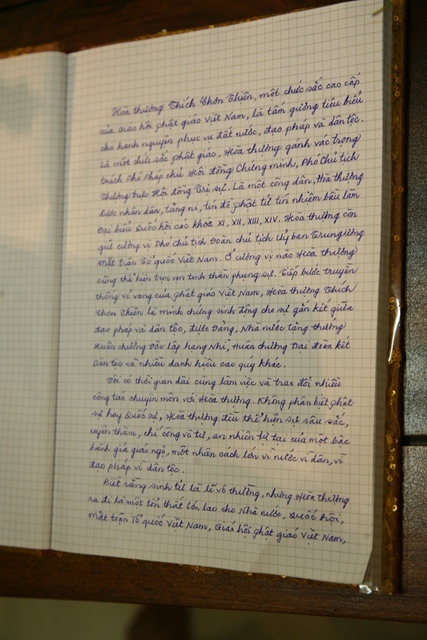 Hòa thượng Thích Chơn Thiện, một chức sắc cao cấp
của Giáo hội phật giáo Việt Nam, là tấm gương tiêu biểu
cho hạnh nguyện phục vụ đất nước, đạo pháp và dân tộc.
Là một chức sắc phật giáo, Hòa thượng gánh vác trọng
trách Phó Pháp chủ Hội đồng Chứng minh, Phó Chủ tịch
Thường trực Hội đồng Trị sự. Là một công dân, Hòa thượng
được nhân dân, tăng ni, tín đồ phật tử tín nhiệm bầu làm
Đại biểu Quốc hội các khóa XI, XII, XIII, XIV. Hòa thượng còn
giữ cương vị Phó chủ tịch Đoàn chủ tịch Ủy ban Trung ương
Mặt trận Tổ quốc Việt Nam. Ở cương vị nào Hòa thượng
cũng thể hiện trọn vẹn tinh thần phụng sự. Tiếp bước truyền
thống vẻ vang của phật giáo Việt Nam, Hòa thượng Thích
Chơn Thiện là minh chứng sinh động cho sự gắn kết giữa
đạo pháp và dân tộc, được Đảng, Nhà nước tặng thưởng
Huân chương Độc lập hạng Nhì, Huân chương Đại đoàn kết
Dân tộc và nhiều danh hiệu cao quý khác.
Tôi có thời gian dài cùng làm việc và trao đổi nhiều
công tác chuyên môn với Hòa thượng. Không phân biệt phật
sự hay Quốc sự, Hòa thượng đều thể hiện sự sâu sắc,
uyên thâm, chí công vô tư, an nhiên tự tại của một bậc
hành giả giác ngộ, một nhân cách lớn vì nước vì dân, vì
đạo pháp vì dân tộc.
Biết rằng sinh tử là lẽ vô thường, nhưng Hòa thượng
ra đi là một tổn thất lớn lao cho Nhà nước, Quốc hội,
Mặt trận Tổ quốc Việt Nam, Giáo hội phật giáo Việt Nam,